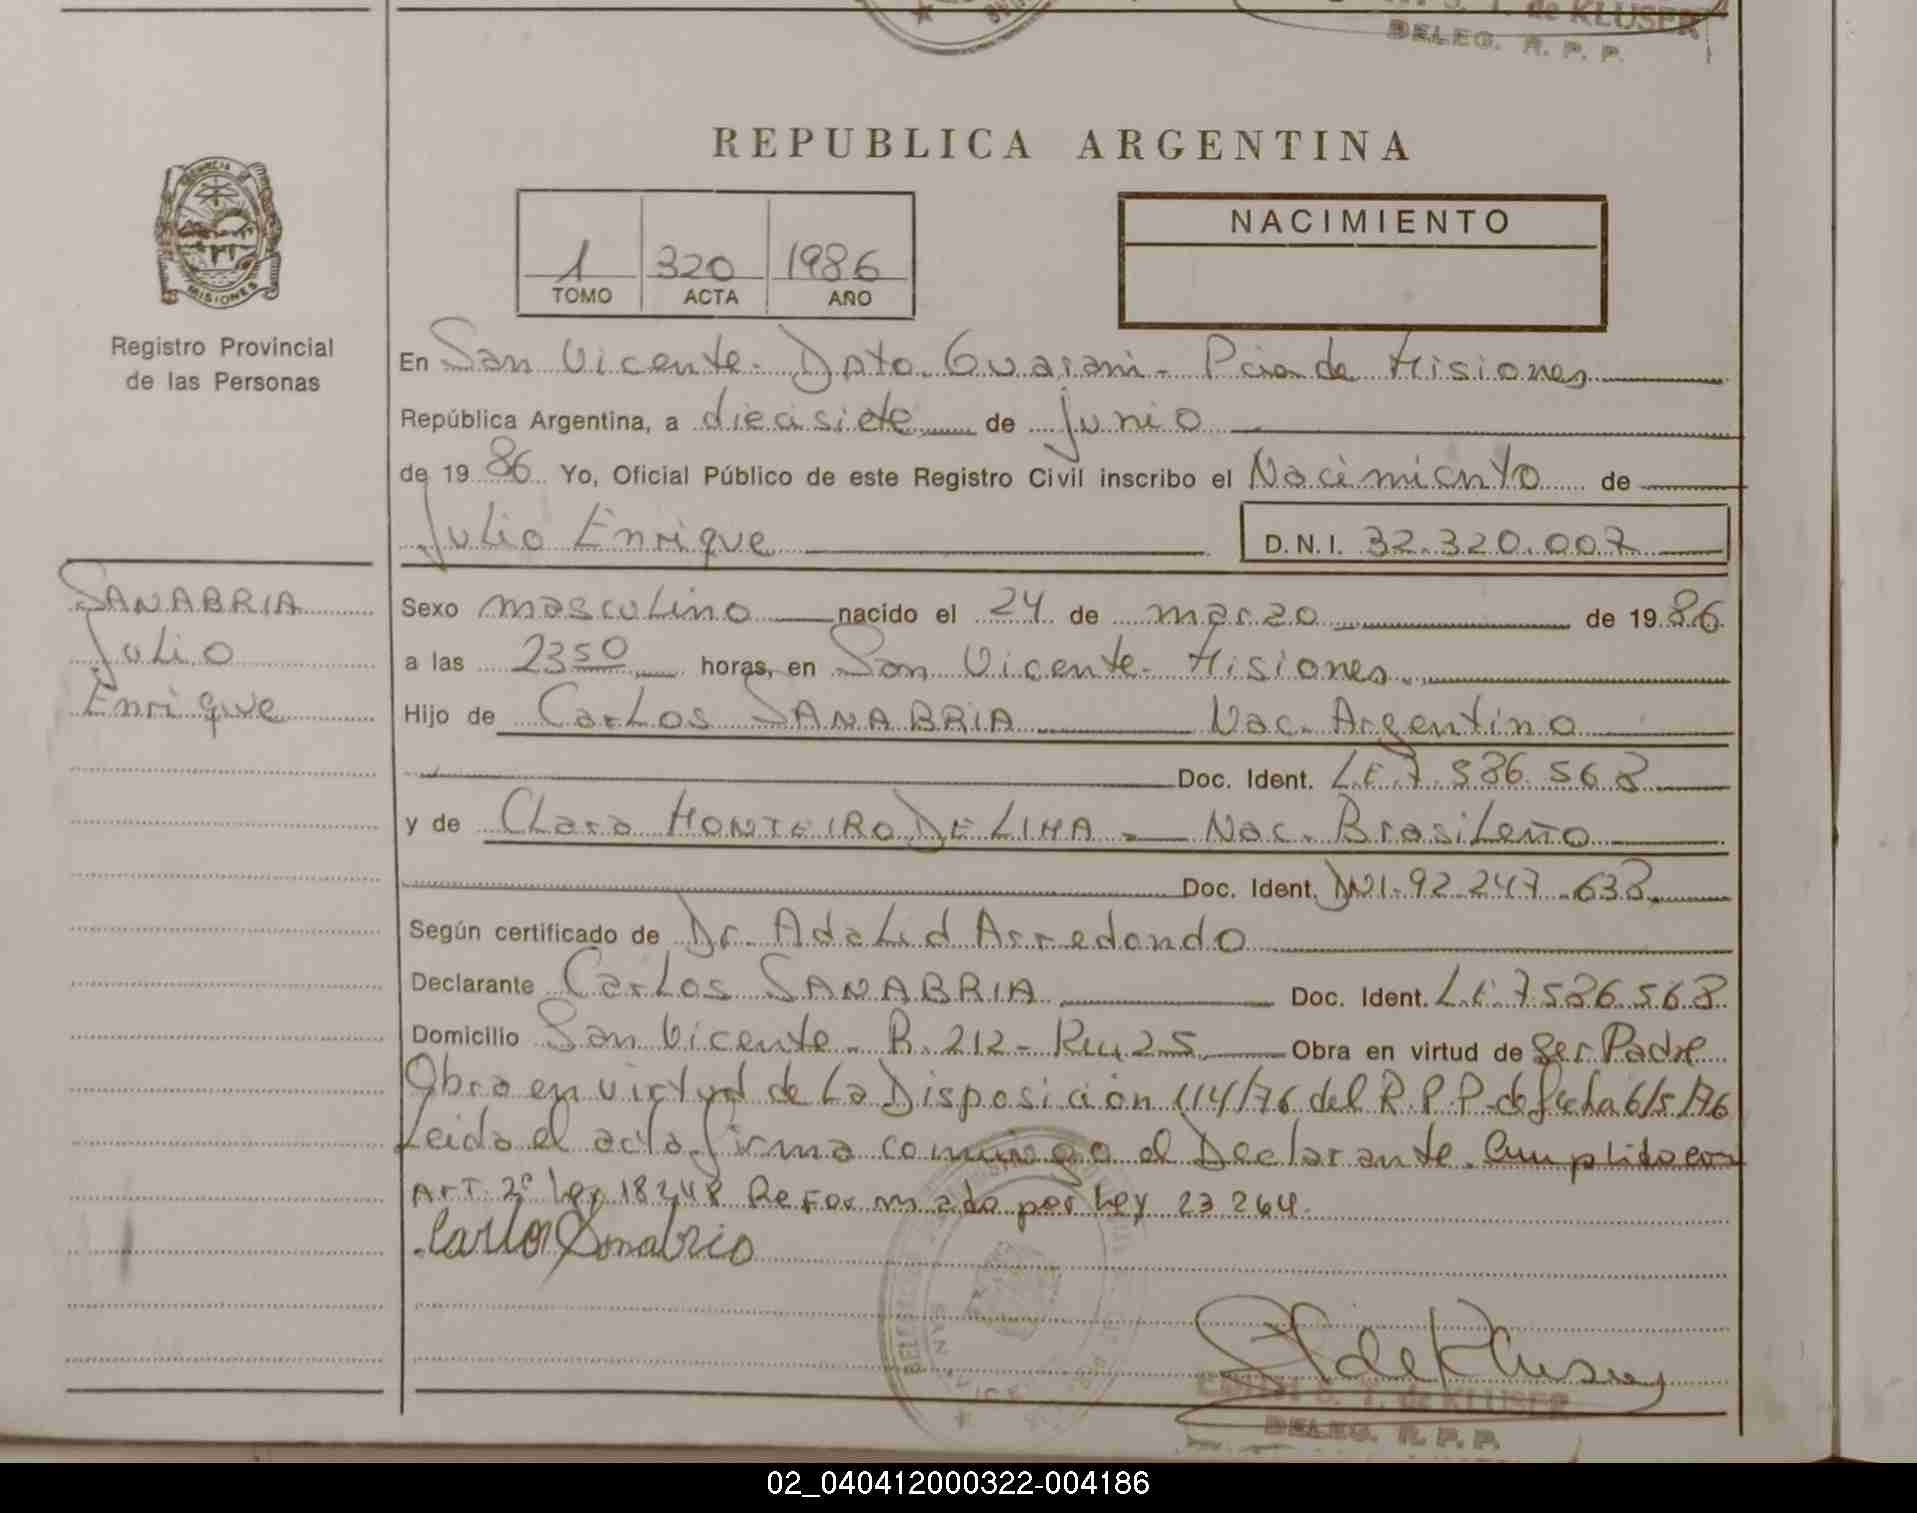 de KLUSER
DELEG. R. P. P.
REPUBLICA ARGENTINA
PROVINCIA
MISIONES
Registro Provincial
de las Personas
1 320 1986
TOMO ACTA AÑO
NACIMIENTO
En San Vicente - Dpto. Guarani - Pcia de Misiones
República Argentina, a diecisiete de junio
de 1986 Yo, Oficial Público de este Registro Civil inscribo el Nacimiento de
Julio Enrique D.N.I. 32.320.007
SANABRIA
Julio
Enrique
Sexo masculino nacido el 24 de marzo de 1986
a las 23 50 horas, en San Vicente - Misiones
Hijo de Carlos SANABRIA Nac. Argentino
Doc. Ident. L.E. 7.586.568
y de Clara MONTEIRO DE LIMA - Nac. Brasileño
Doc. Ident. DNI. 92.247.638
Según certificado de Dr. Adalid Arredondo
Declarante Carlos SANABRIA Doc. Ident. L.E. 7.586.568
Domicilio San Vicente - R. 212 - Km 25 Obra en virtud de Ser Padre
Obra en virtud de La Disposición 114/76 del R.P.P. de fecha 6/5/76
Leida el acta firma conmigo el Declarante. Cumplido con
ART. 2º Ley 18248 Reformado por Ley 23264.
Carlos Sanabria
S. T. de KLUSER
DELEG. R. P. P.
02_040412000322-004186